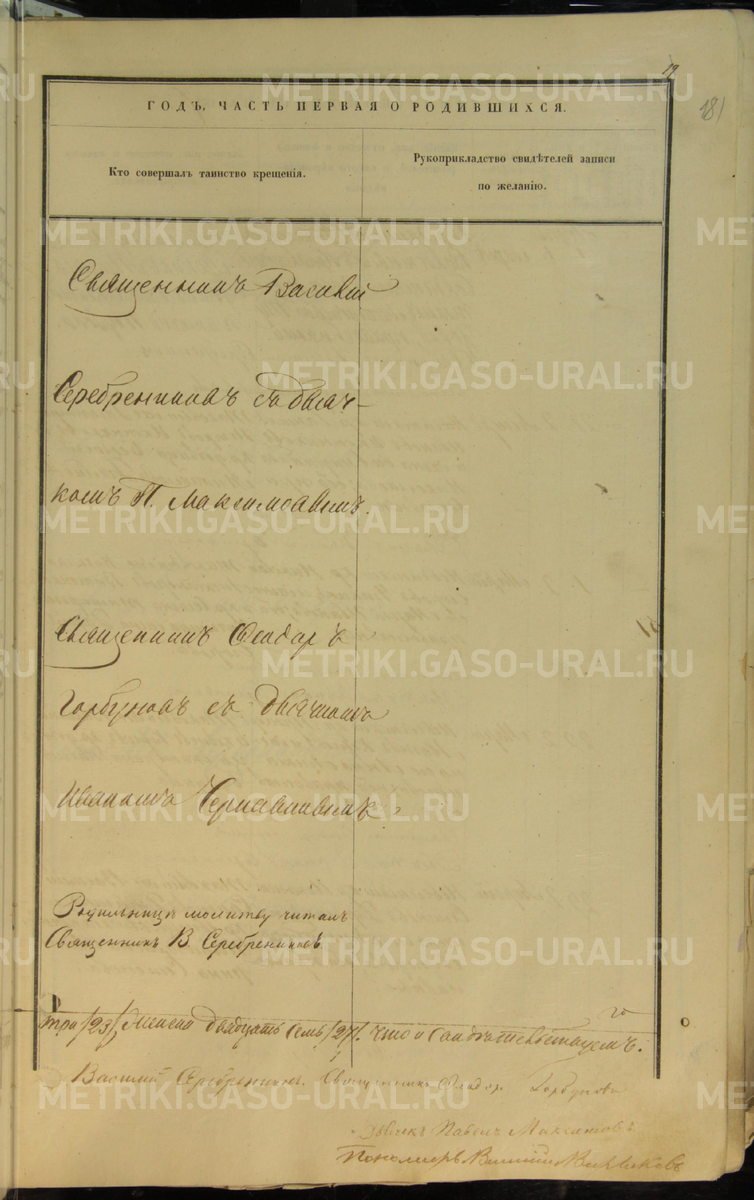 19
181
ГОДЪ, ЧАСТЬ ПЕРВАЯ О РОДИВШИХСЯ.
Кто совершалъ таинство крещенія.
Рукоприкладство свидѣтелей записи
по желанію.
METRIKI.GASO-URAL.RU
Священникъ Василій
Серебрениковъ съ дьяч-
комъ П. Максимовымъ.
Священникъ Ѳеодоръ
Горбуновъ съ дьячкомъ
Иваномъ
Родильницѣ молитву читалъ
Священникъ В. Серебрениковъ
три /23/, женска двадцать семь /27/. Что и свидѣтельствуемъ:
Василій Серебрениковъ. Священникъ Ѳеодоръ Горбуновъ
Дьячекъ Павелъ Максимовъ
Пономарь